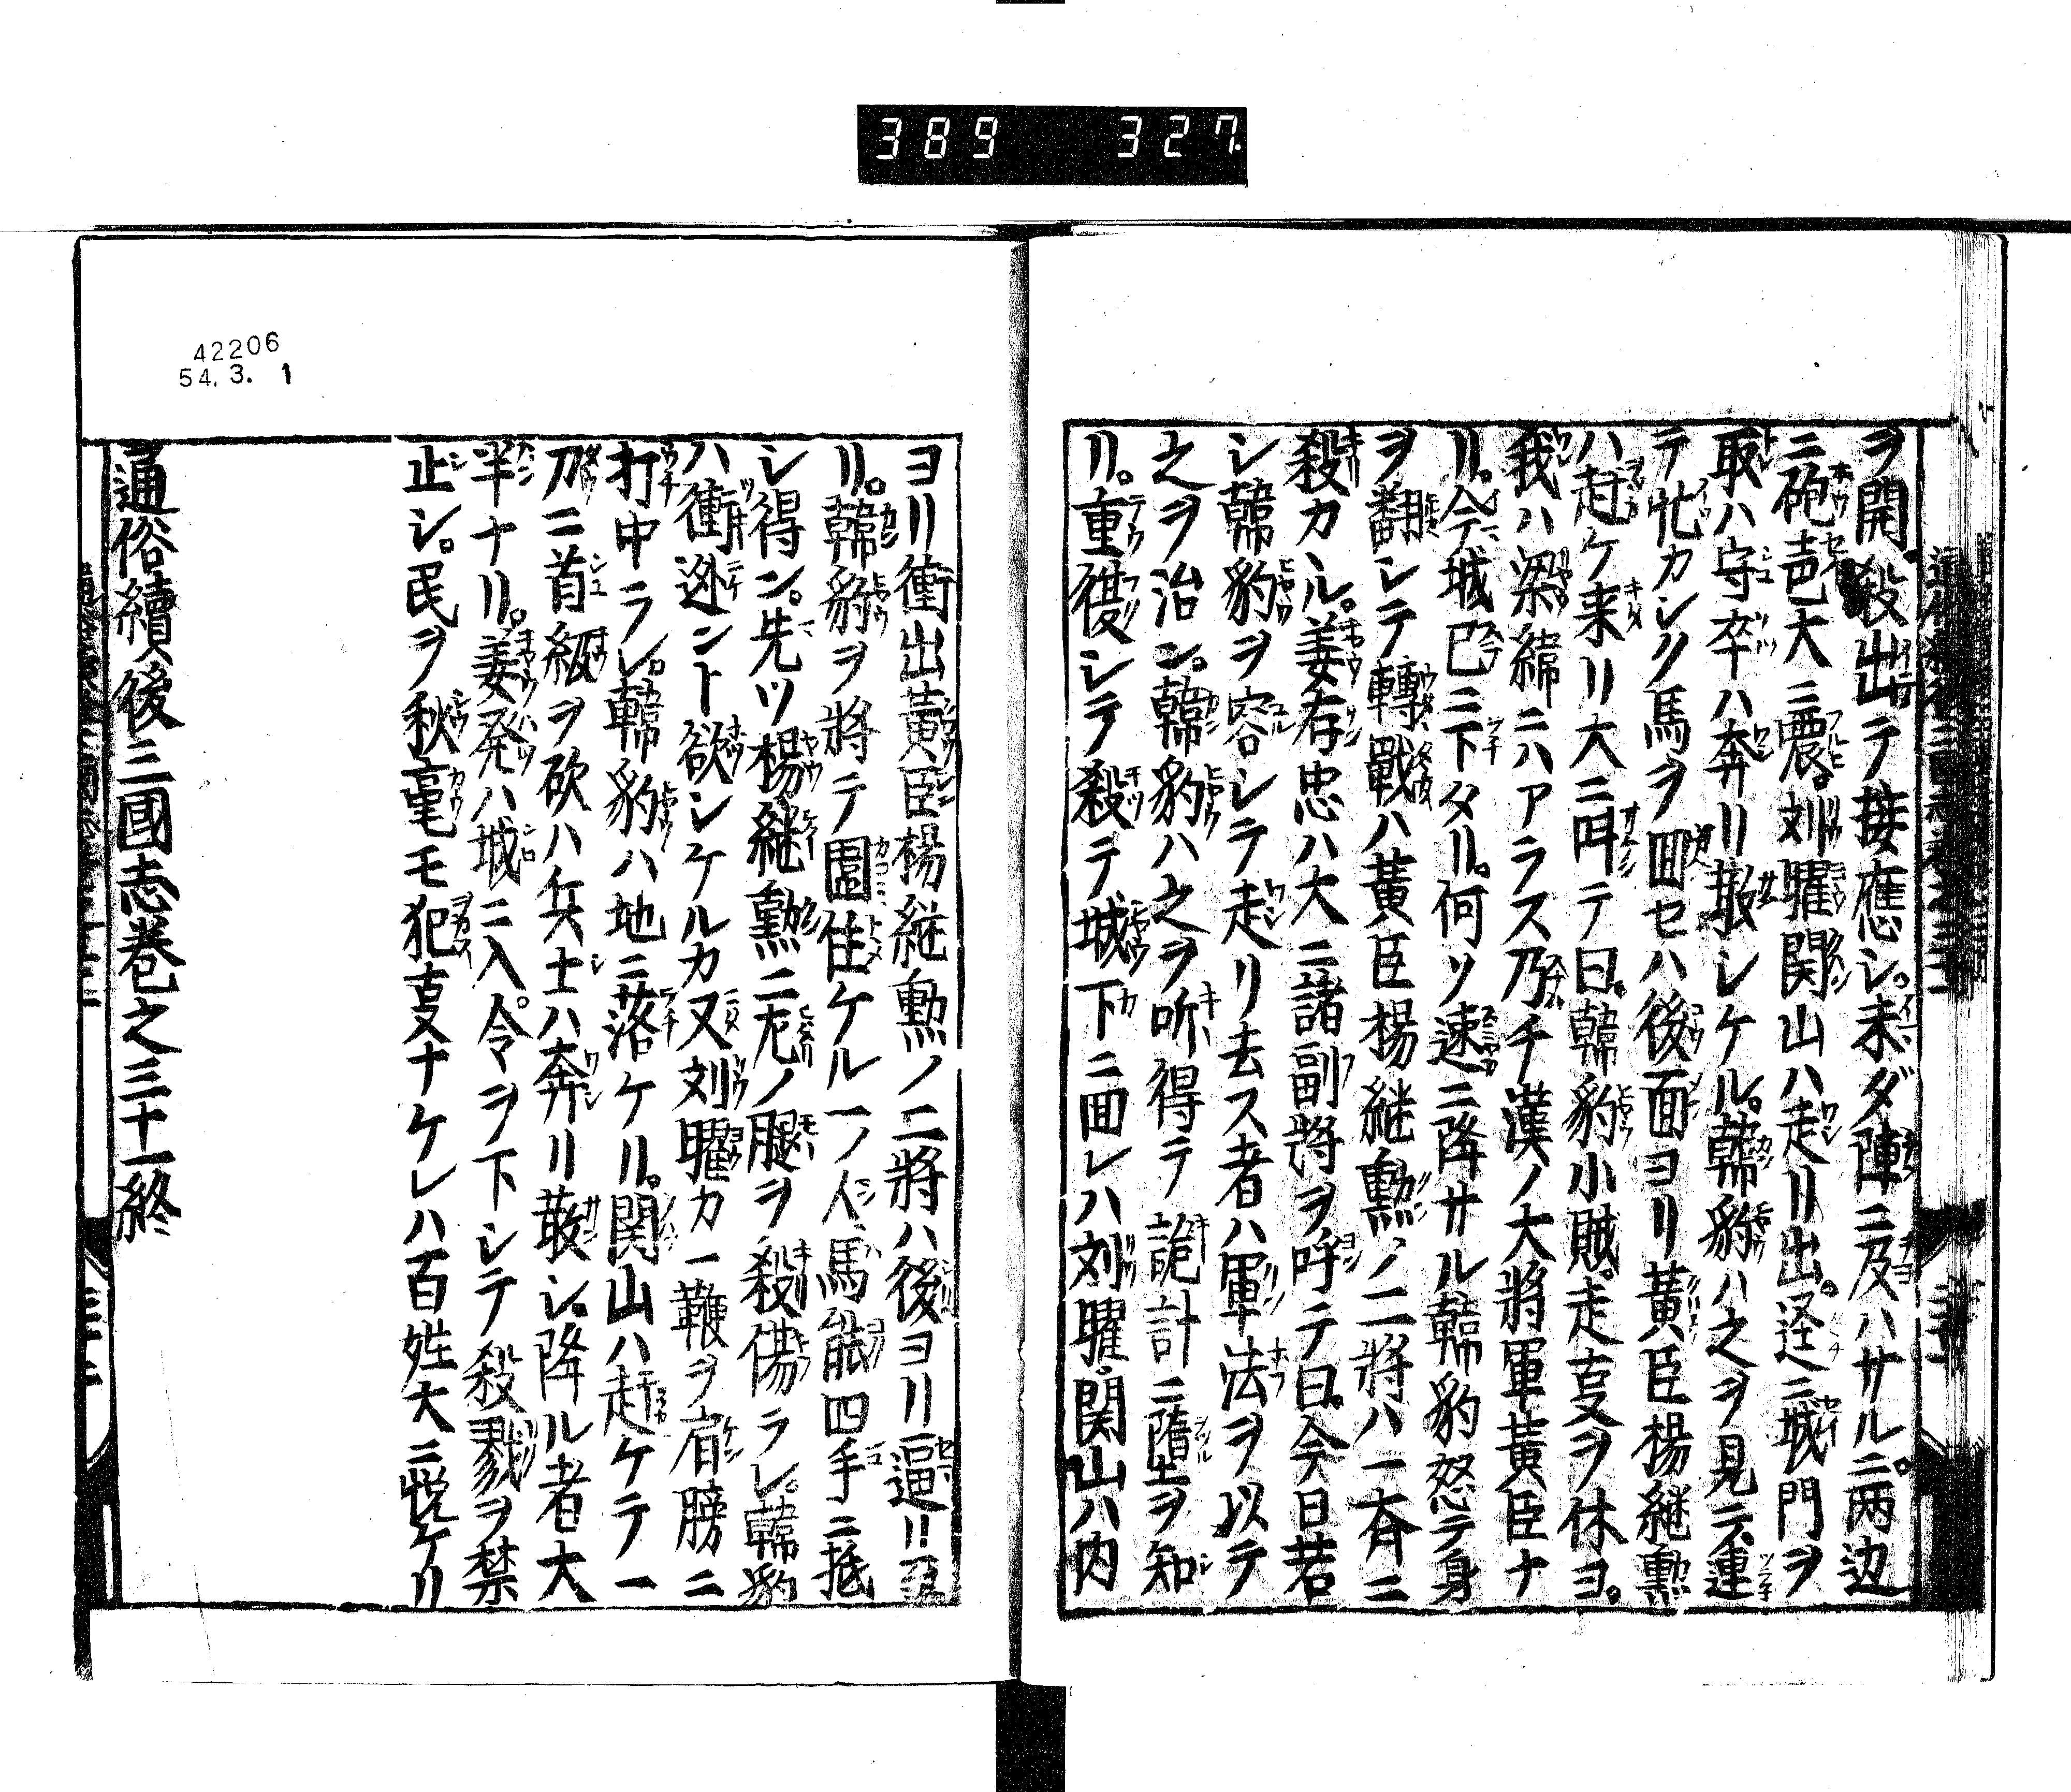 389 327
ヲ開殺出テ接應シ。未ダ陣ニ及ハサルニ。兩边
ニ砲㐂大ニ震ヒ刘曜関山ハ走リ出。迳ニ城門ヲ
取ハ守卒ハ奔リ散シケル。韓豹ハ之ヲ見テ連
テ忙カシク馬ヲ囬セハ後面ヨリ黄臣楊継勳
ハ赶ケ来リ大ニ呼テ曰。韓豹小賊。走叓ヲ休ヨ。
我ハ梁緯ニハアラス乃チ漢ノ大將軍黄臣ナ
リ。今城已ニ下タリ。何ソ速ニ降サル韓豹怒テ身
ヲ翻シテ轉戰ハ黄臣楊継勳ノ二將ハ一斉ニ
殺カヽル。姜存忠ハ大ニ諸副將ヲ呼テ曰。今日若
シ韓豹ヲ容シテ走リ去ス者ハ軍法ヲ以テ
之ヲ治ン。韓豹ハ之ヲ听得テ詭計ニ墮ヲ知
リ。重復シテ殺テ城下ニ囬レハ刘曜関山ハ内
ヨリ衝出黄臣楊継勳ノ二將ハ後ヨリ逼リ
リ。韓豹ヲ將テ圍住ケル一人馬能四手ニ抵
シ得ン。先ツ楊継勳ニ左ノ腿ヲ殺傷ラレ。韓豹
ハ衝逊ント欲シケルカ又刘曜カ一鞭ヲ肩膀ニ
打中ラレ。韓豹ハ地ニ落ケリ。関山ハ赶ケテ一
刀ニ首級ヲ砍ハ兵士ハ奔リ散シ。降ル者大
半ナリ。姜発ハ城ニ入。令ヲ下シテ殺戮ヲ禁
止シ。民ヲ秋毫モ犯叓ナケレハ百姓大ニ悦ケリ
通俗續後三國志巻之三十一終
42206
54.3.1